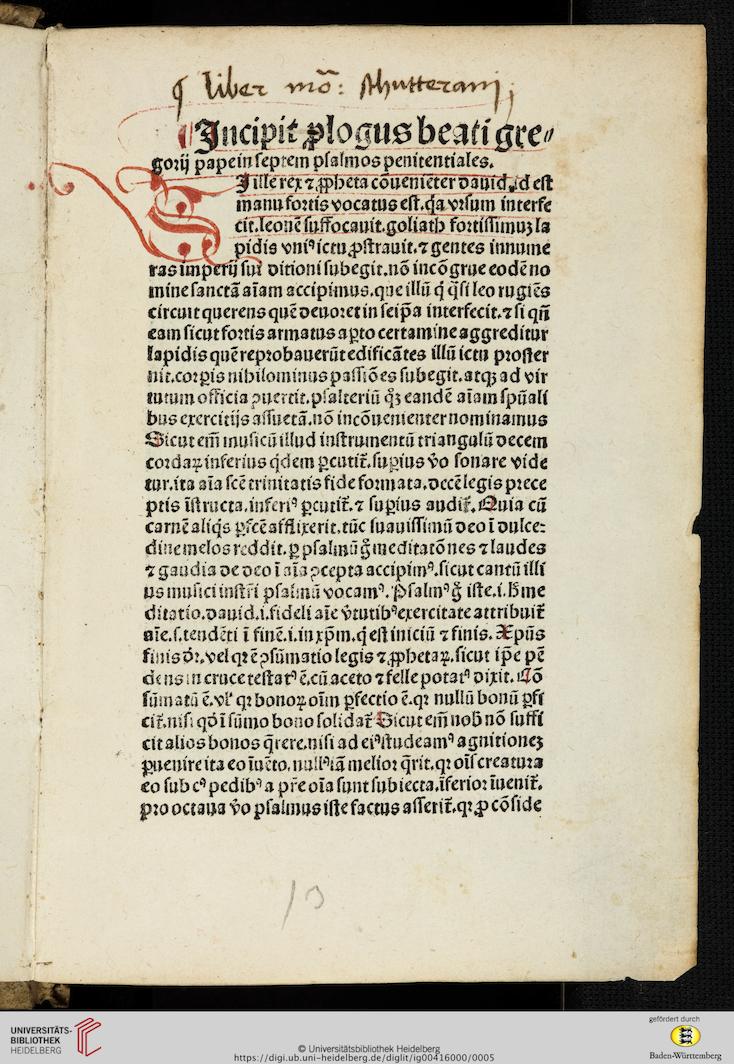 ¶ Liber mō: Schutterani;
¶ Incipit ꝓlogus beati gre⸗
gorij pape in septem psalmos penitentiales.
SI ille rex ⁊ ꝓpheta cōuenieter dauid .id est
manu fortis vocatus est. q̇a vrsum interfe
cit. leonē suffocauit. goliath fortissimuꝫ la
pidis vniꝰ ictu ꝓstrauit. ⁊ gentes innume
ras imperij sui ditioni subegit. nō incōgrue eodē no
mine sanctā aīam accipimus. que illū q̇ q̄si leo rugiēs
circuit querens quē deuoret in seip̄a interfecit. ⁊ si qn̄
eam sicut fortis armatus aꝑto certamine aggreditur
lapidis quē reprobauerūt edificātes illū ictu proster
nit. corꝑis nihilominus passiōes subegit. atqꝫ ad vir
tutum officia ↄuertit. psalteriū qꝫ̄ eandē aīam spūali
bus exercitijs assuetā. nō incōuenienter nominamus
Sicut em̄ musicū illud instrumentū triangulū decem
cordaꝝ inferius q̇dem ꝑcutit̄. suꝑius v̄o sonare vide
tur. ita aīa scē trinitatis fide formata. decē legis prece
ptis īstructa. inferiꝰ ꝑcutit̄. ⁊ suꝑius audit̄. Quia cū
carnē aliq̇s ꝑfcē afflixerit. tūc suauissimū deo ī dulce⸗
dine melos reddit. ꝑ psalmū g̊ meditatōnes ⁊ laudes
⁊ gaudia de deo ī aīa ↄcepta accipimꝰ. sicut cantū illi
us musici instrī psalmū vocamꝰ. Psalmꝰ g̊ iste .i. h̄ me
ditatio. dauid .i. fideli aīe v̄tutibꝰ exercitate attribuit̄
aīe .s. tendēti ī finē .i. in xp̄m. q̇ est iniciū ⁊ finis. Xp̄us
finis dr̄. vel qꝛ ē ↄsūmatio legis ⁊ ꝓphetaꝝ. sicut ip̄e pē
dens in cruce testatꝰ ē. cū aceto ⁊ felle potatꝰ dixit. Cō
sūmatū ē. vl̓ qꝛ bonoꝝ oīm ꝑfectio ē. qꝛ nullū bonū ꝑfi
cit̄. nisi qd̓ ī sūmo bono solidat̄ Sicut em̄ nob̄ nō suffi
cit alios bonos q̄rere. nisi ad eiꝰ studeamꝰ agnitionēꝫ
ꝑuenire ita eo īuēto. nullꝰ iā melior q̄rit̄. qꝛ oīs creatura
eo sub cꝰ pedibꝰ a pr̄e oīa sunt subiecta. īferior īuenit̄.
pro octaua v̄o psalmus iste factus asserit̄. qꝛ ꝓ cōside
13
UNIVERSITÄTS-
BIBLIOTHEK
HEIDELBERG
© Universitätsbibliothek Heidelberg
https://digi.ub.uni-heidelberg.de/diglit/ig00416000/0005
gefördert durch
Baden-Württemberg